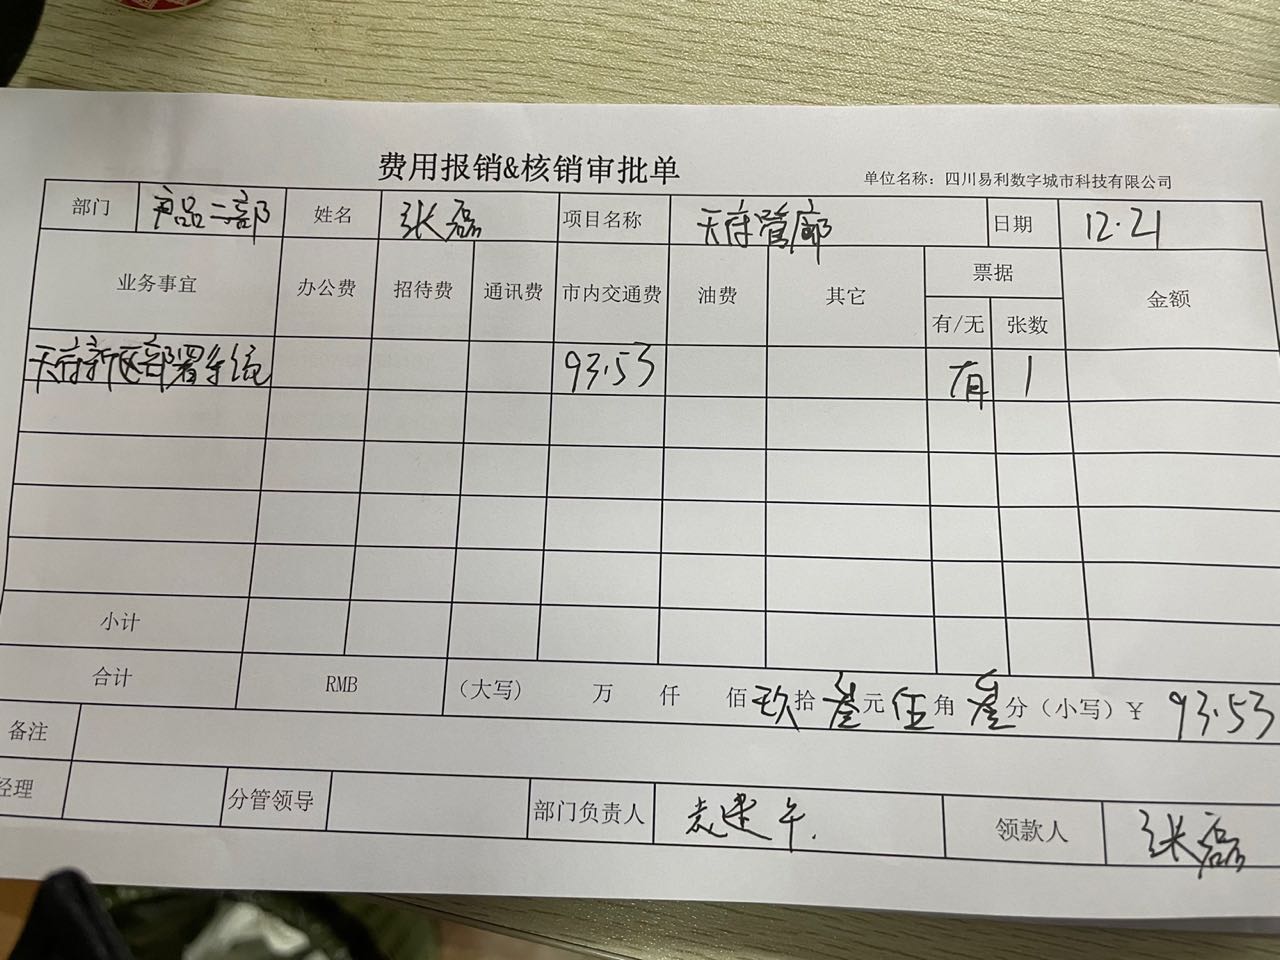 费用报销&核销审批单
单位名称：四川易利数字城市科技有限公司
部门 产品二部 姓名 张磊 项目名称 天府管廊 日期 12.21
业务事宜 办公费 招待费 通讯费 市内交通费 油费 其它 票据 金额
有/无 张数
天府新区部署系统 93.53 有 1
小计
合计 RMB （大写） 万 仟 佰 玖 拾 叁 元 伍 角 叁 分（小写）￥ 93.53
备注
经理 分管领导 部门负责人 领款人 张磊